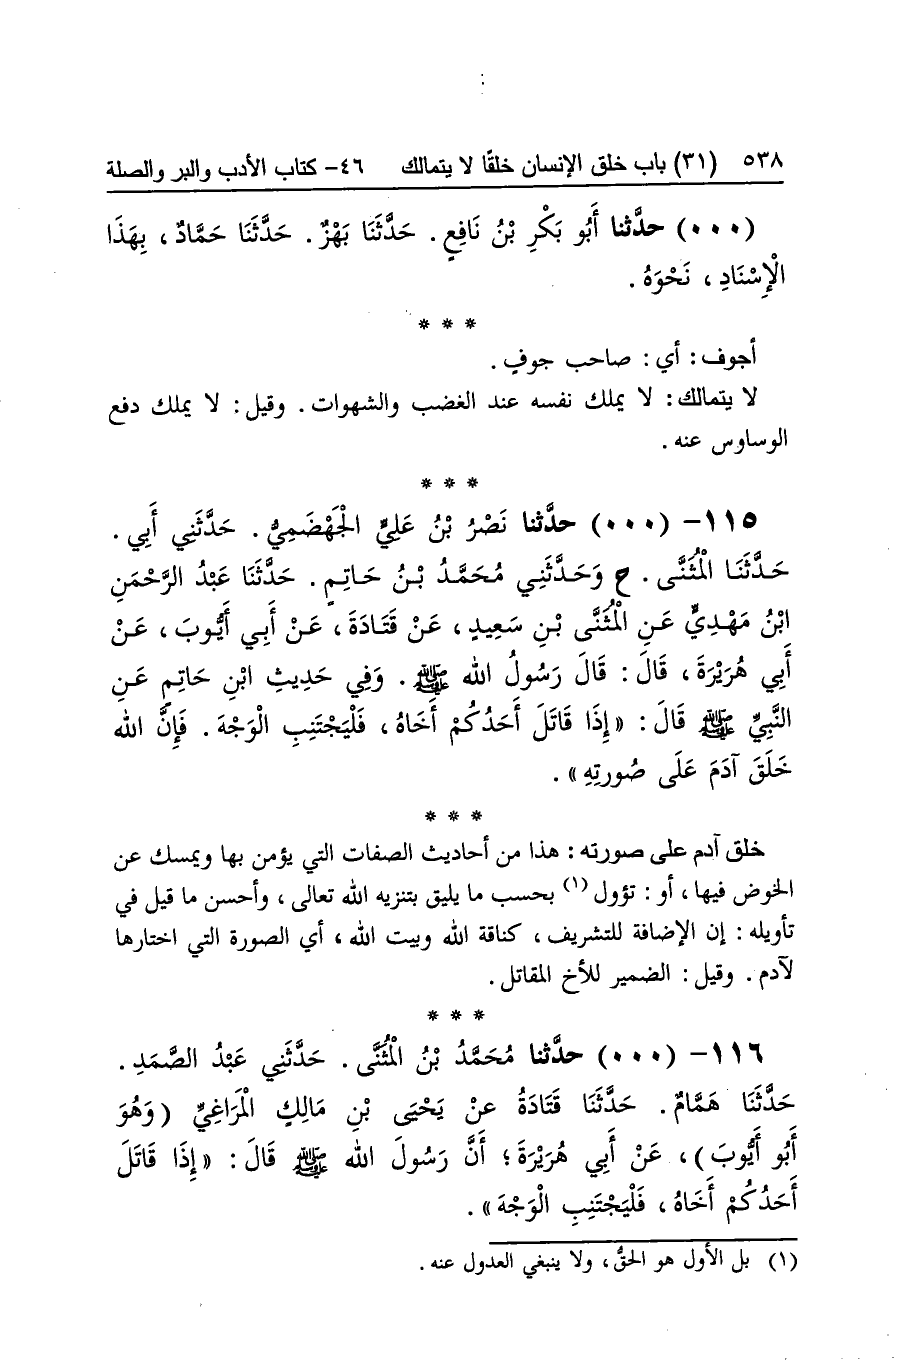 ٥٣٨ (٣١) باب خلق الإنسان خلقًا لا يتمالك ٤٦- كتاب الأدب والبر والصلة
(٠٠٠) حدَّثنا أَبُو بَكْرِ بْنُ نَافِعٍ . حَدَّثَنَا بَهْزٌ . حَدَّثَنَا حَمَّادٌ ، بِهَذَا
الْإِسْنَادِ ، نَحْوَهُ .
* * *
أجوف : أي : صاحب جوفٍ .
لا يتمالك : لا يملك نفسه عند الغضب والشهوات . وقيل : لا يملك دفع
الوساوس عنه .
* * *
١١٥- (٠٠٠) حدَّثنا نَصْرُ بْنُ عَلِيٍّ الْجَهْضَمِيُّ . حَدَّثَنِي أَبِي .
حَدَّثَنَا الْمُثَنَّى . ح وَحَدَّثَنِي مُحَمَّدُ بْنُ حَاتِمٍ . حَدَّثَنَا عَبْدُ الرَّحْمَنِ
ابْنُ مَهْدِيٍّ عَنِ الْمُثَنَّى بْنِ سَعِيدٍ ، عَنْ قَتَادَةَ ، عَنْ أَبِي أَيُّوبَ ، عَنْ
أَبِي هُرَيْرَةَ ، قَالَ : قَالَ رَسُولُ الله ﷺ . وَفِي حَدِيثِ ابْنِ حَاتِمٍ عَنِ
النَّبِيِّ ﷺ قَالَ : « إِذَا قَاتَلَ أَحَدُكُمْ أَخَاهُ ، فَلْيَجْتَنِبِ الْوَجْهَ . فَإِنَّ الله
خَلَقَ آدَمَ عَلَى صُورتِهِ » .
* * *
خلق آدم على صورته : هذا من أحاديث الصفات التي يؤمن بها ويمسك عن
الخوض فيها ، أو : تؤول (١) بحسب ما يليق بتنزيه الله تعالى ، وأحسن ما قيل في
تأويله : إن الإضافة للتشريف ، كناقة الله وبيت الله ، أي الصورة التي اختارها
لآدم . وقيل : الضمير للأخ المقاتل .
* * *
١١٦- (٠٠٠) حدَّثنا مُحَمَّدُ بْنُ الْمُثَنَّى . حَدَّثَنِي عَبْدُ الصَّمَدِ .
حَدَّثَنَا هَمَّامٌ . حَدَّثَنَا قَتَادَةُ عنْ يَحْيَى بْنِ مَالِكٍ الْمَرَاغِيِّ (وَهُوَ
أَبُو أَيُّوبَ) ، عَنْ أَبِي هُرَيْرَةَ ؛ أَنَّ رَسُولَ الله ﷺ قَالَ : « إِذَا قَاتَلَ
أَحَدُكُمْ أَخَاهُ ، فَلْيَجْتَنِبِ الْوَجْهَ » .
(١) بل الأول هو الحقُّ ، ولا ينبغي العدول عنه .